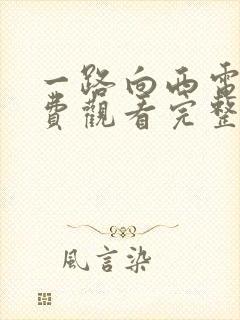 一路向西電
費觀看完整
風言染